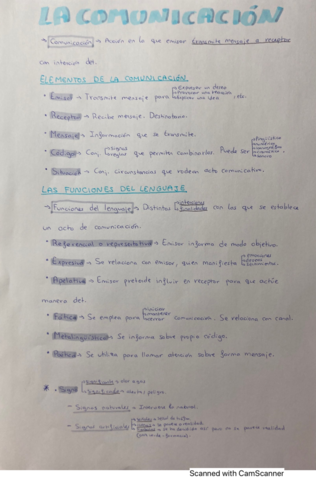 LA COMUNICACIÓN
Comunicación → Acción en la que emisor transmite mensaje a receptor
con intención det.
ELEMENTOS DE LA COMUNICACIÓN
• Emisor → Transmite mensaje para Expresar un deseo
Provocar una
una idea, etc.
• Receptor → Recibe mensaje. Destinatario.
• Mensaje → Información que se transmite.
• Código → Conj. signos
reglas que permiten combinarlos. Puede ser
• Situación → Conj. circunstancias que rodean acto comunicativo.
LAS FUNCIONES DEL LENGUAJE
Funciones del lenguaje → Distintas intenciones
finalidades con las que se establece
un acto de comunicación.
• Referencial o representativa → Emisor informa de modo objetivo.
• Expresiva → Se relaciona con emisor, quien manifiesta emociones
• Apelativa → Emisor pretende influir en receptor para que actúe
manera det.
• Fática → Se emplea para iniciar
comunicación. Se relaciona con canal.
• Metalingüística → Se informa sobre propio código.
• Poética → Se utiliza para llamar atención sobre forma mensaje.
Signo significante →
significado →
- Signos naturales →
- Signos artificiales
Scanned with CamScanner